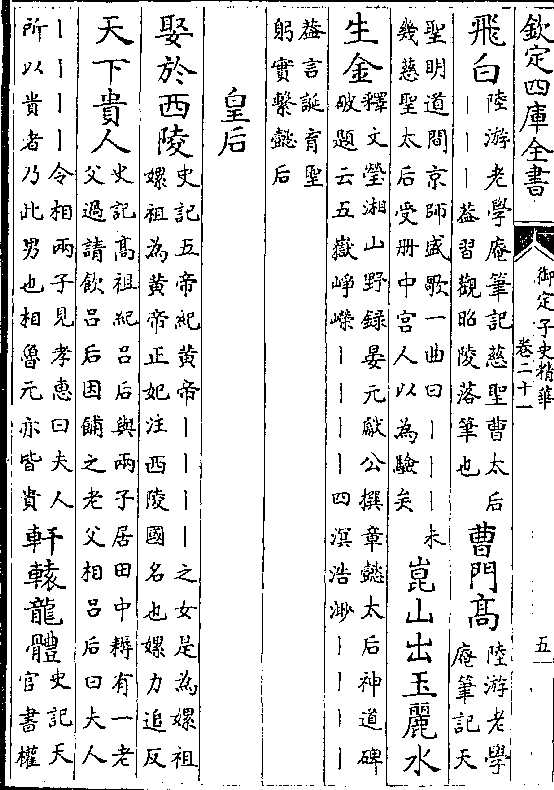 欽定四庫全書
御定子史精華
卷二十一
五
飛白陸游老學庵筆記慈聖曹太后
｜｜｜葢習觀昭陵落筆也
曹門高陸游老學
庵筆記天
聖明道間京師盛歌一曲曰｜｜｜未
幾慈聖太后受册中宫人以為驗矣
崑山出玉麗水
生金釋文瑩湘山野録晏元獻公撰章懿太后神道碑
破題云五嶽崢嶸｜｜｜｜四溟浩渺｜｜｜｜
葢言誕育聖
躬實繫懿后
皇后
娶於西陵史記五帝紀黄帝｜｜｜｜之女是為嫘祖
嫘祖為黄帝正妃注西陵國名也嫘力追反
天下貴人史記髙祖紀吕后與兩子居田中耨有一老
父過請飲吕后因餔之老父相吕后曰夫人
｜｜｜｜令相兩子見孝惠曰夫人
所以貴者乃此男也相魯元亦皆貴
軒轅龍體史記天
官書權